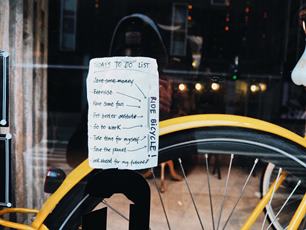 TO DO LIST
Save some money
Exercise
Have some fun
Get better attitude
Go to work
Take time for myself
Save the planet
Look ahead for my future!
RIDE BICYCLE!